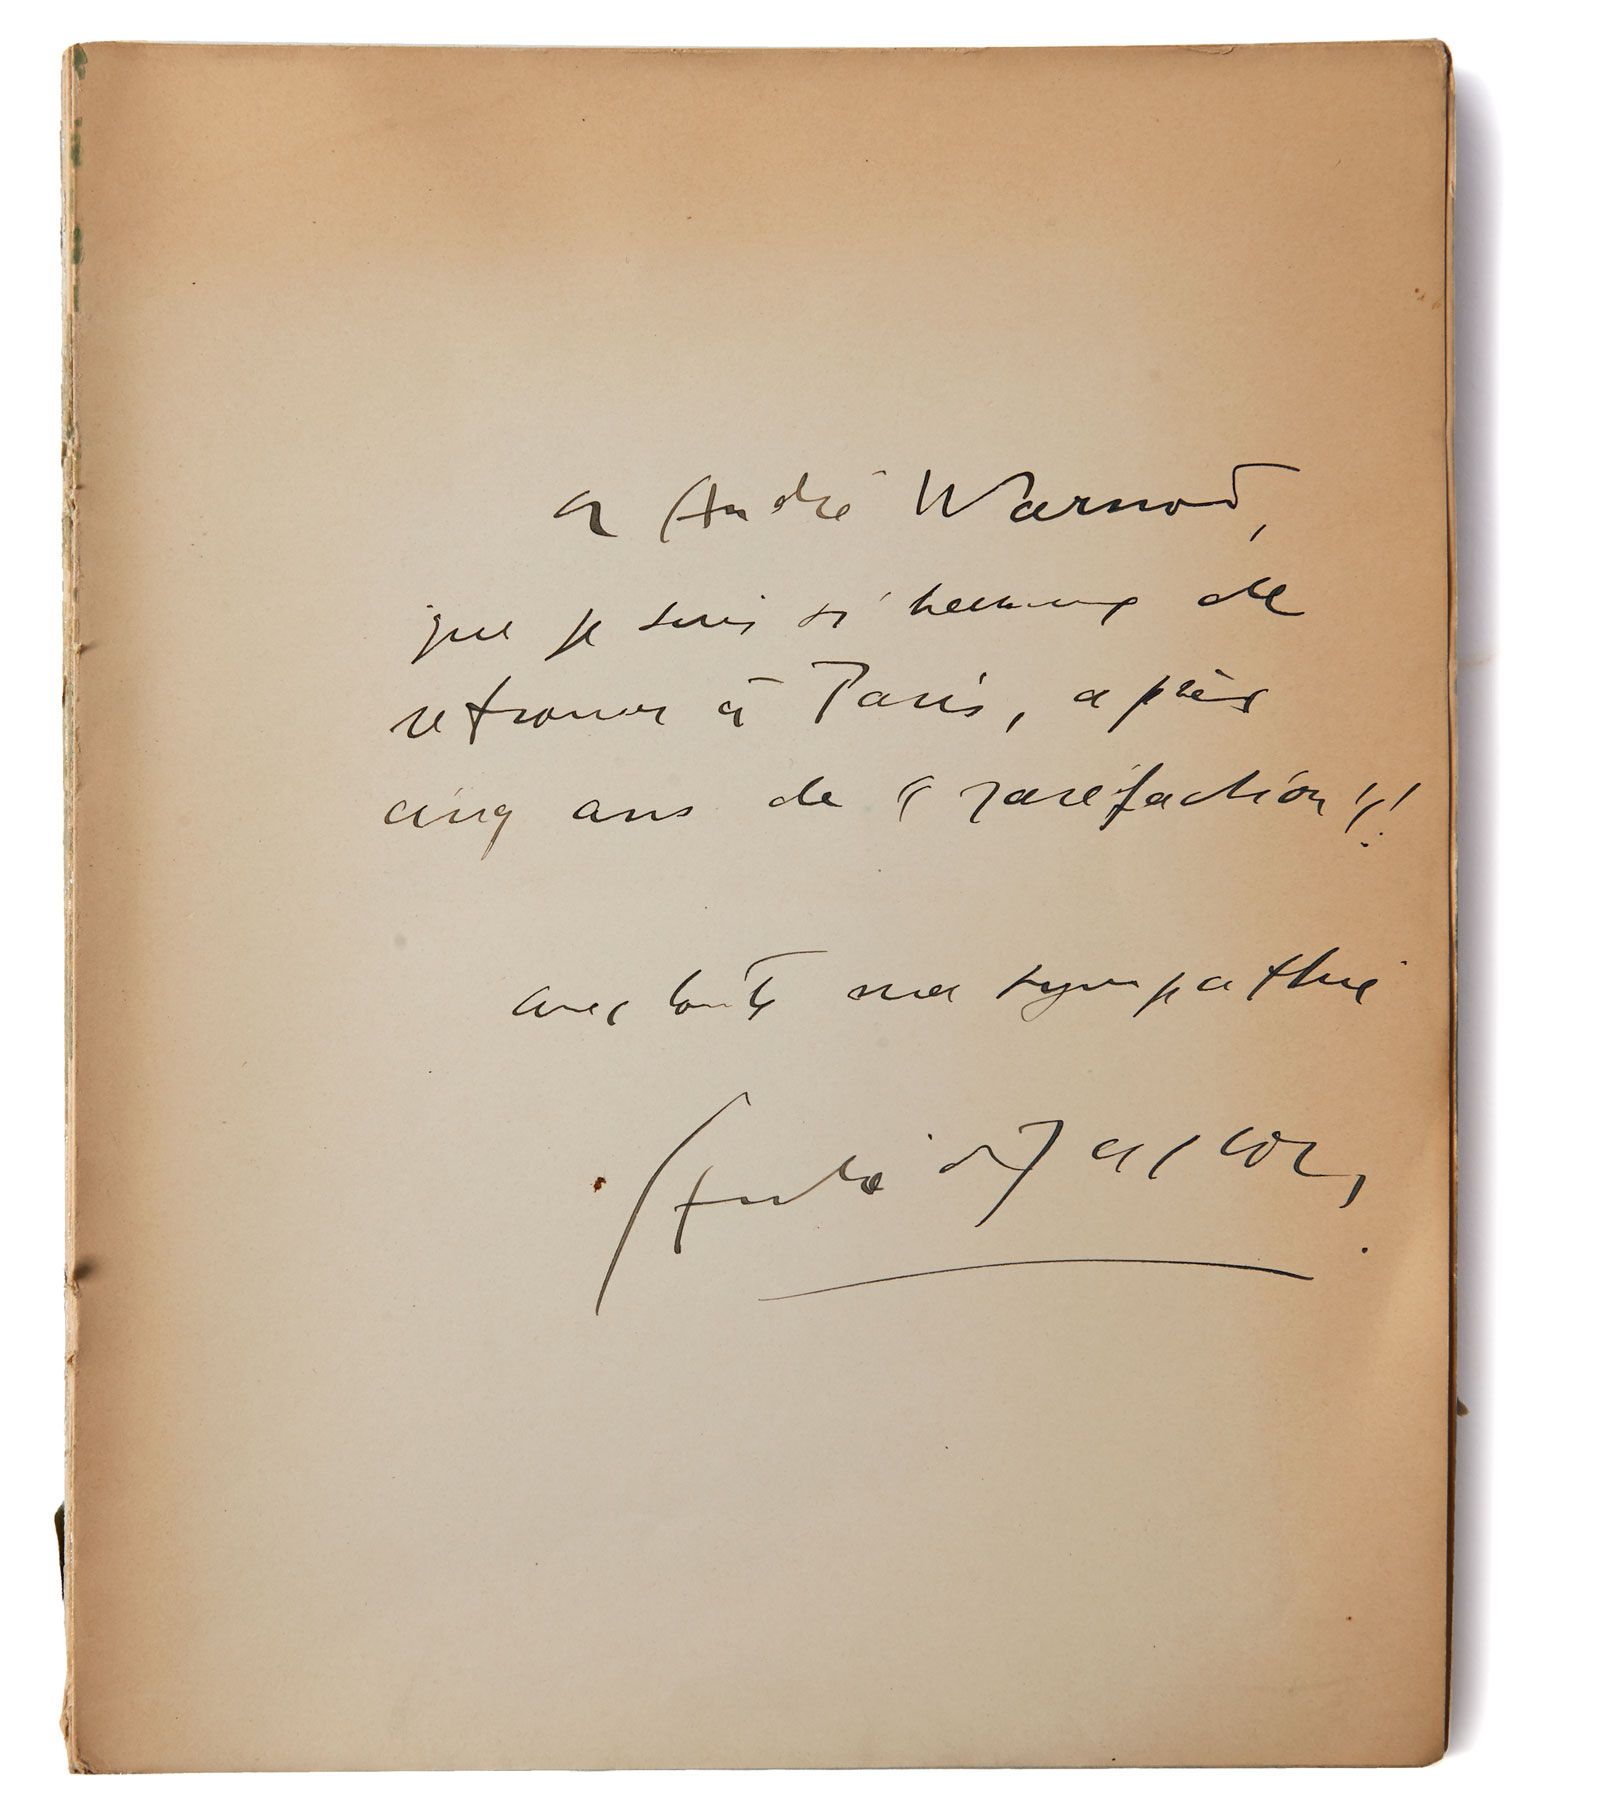 a André Warnod,
que je suis si heureux de
retrouver à Paris, après
cinq ans de « raréfaction » !
avec toute ma sympathie
André